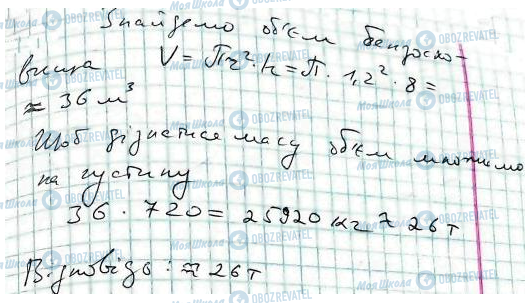 Знайдемо об'єм бензоско-
вища V = πr²·h = π·1,2²·8 =
≈ 36 м³
Щоб дізнатися масу об'єм множимо
на густину
36 · 720 = 25920 кг ≈ 26 т
Відповідь: ≈ 26 т